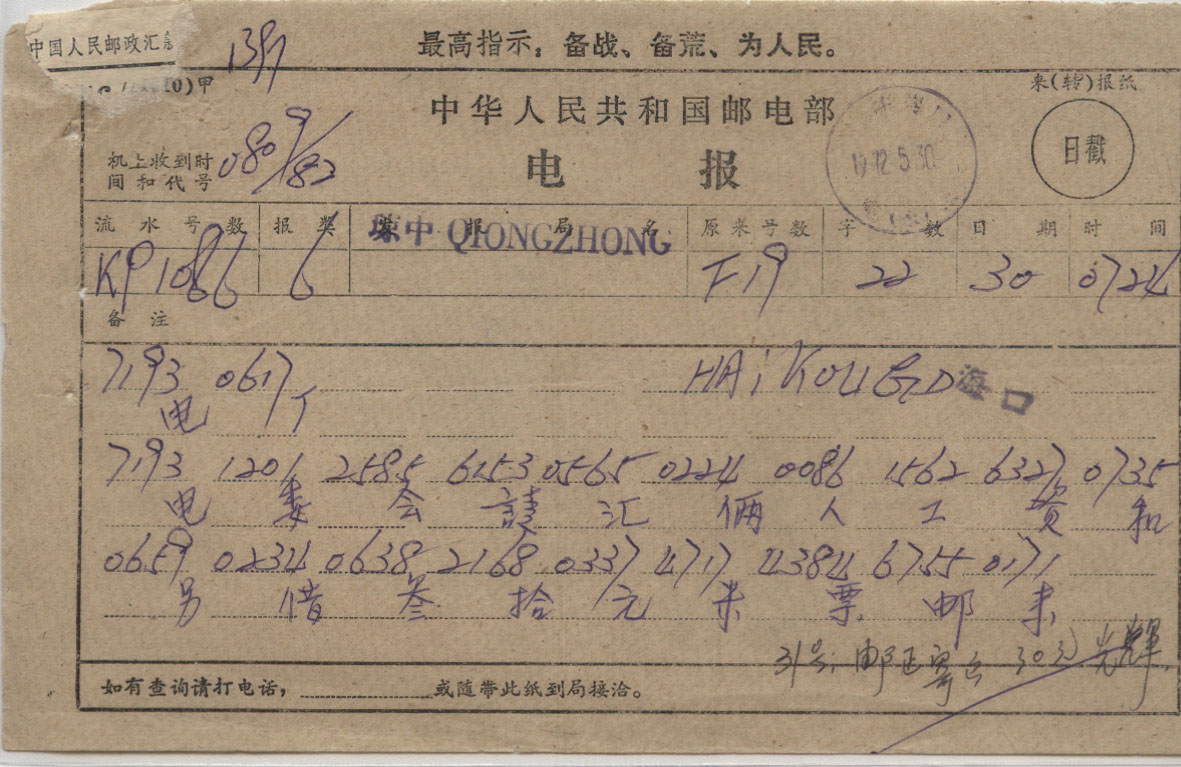 中国人民邮政汇
1391
最高指示：备战、备荒、为人民。
甲
来(转)报纸
中华人民共和国邮电部
日戳
机上收到时间和代号
0809/82
电 报
1972.5.30
流水号数 报类 报局名 原来号数 字数 日期 时间
琼中 QIONGZHONG
KP1086 6 F19 22 30 0724
备注
7193 0617 HAiKOU GD 海口
电
7193 1201 2585 6153 0565 0224 0086 1562 6327 0735
电 委 会 請 汇 俩 人 工 资 和
0659 0234 0638 2168 0337 4717 4384 6755 0171
另 借 叁 拾 元 米 票 邮 来
31号: 邮 30元 光辉
如有查询请打电话， 或随带此纸到局接洽。